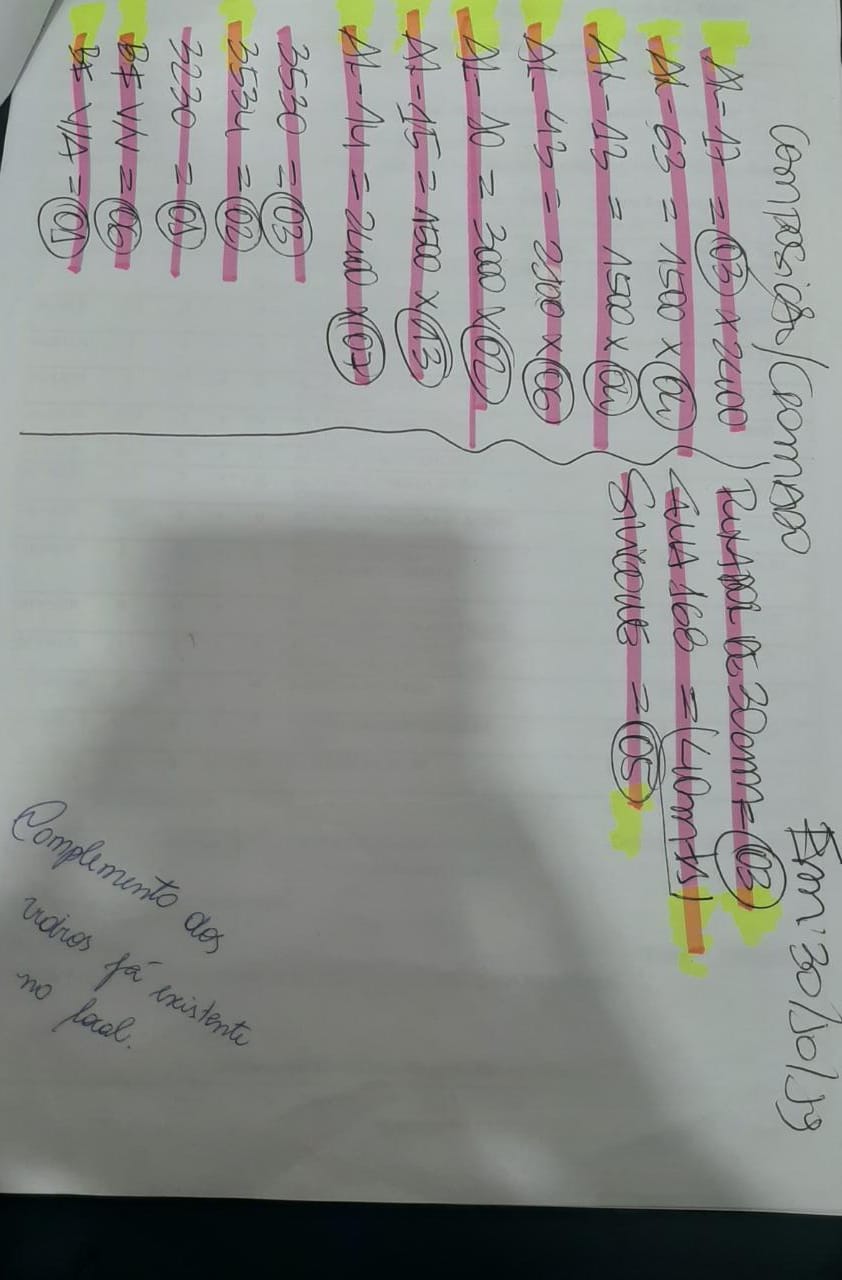 Composição/Cromado
Em: 30/10/19
AL-17 = 03 x 2400
AL-63 = 1500 x 04
AL-13 = 1500 x 04
AL-43 = 2300 x 06
AL-10 = 3000 x 02
AL-15 = 1500 x 13
AL-14 = 2400 x 07
3530 = 03
3534 = 02
3230 = 01
BF V/V = 06
BF V/A = 01
PUXADOR DE 30cm = 03
168 = (40mts)
SILICONE = 05
Complemento dos
vidros já existente
no local.